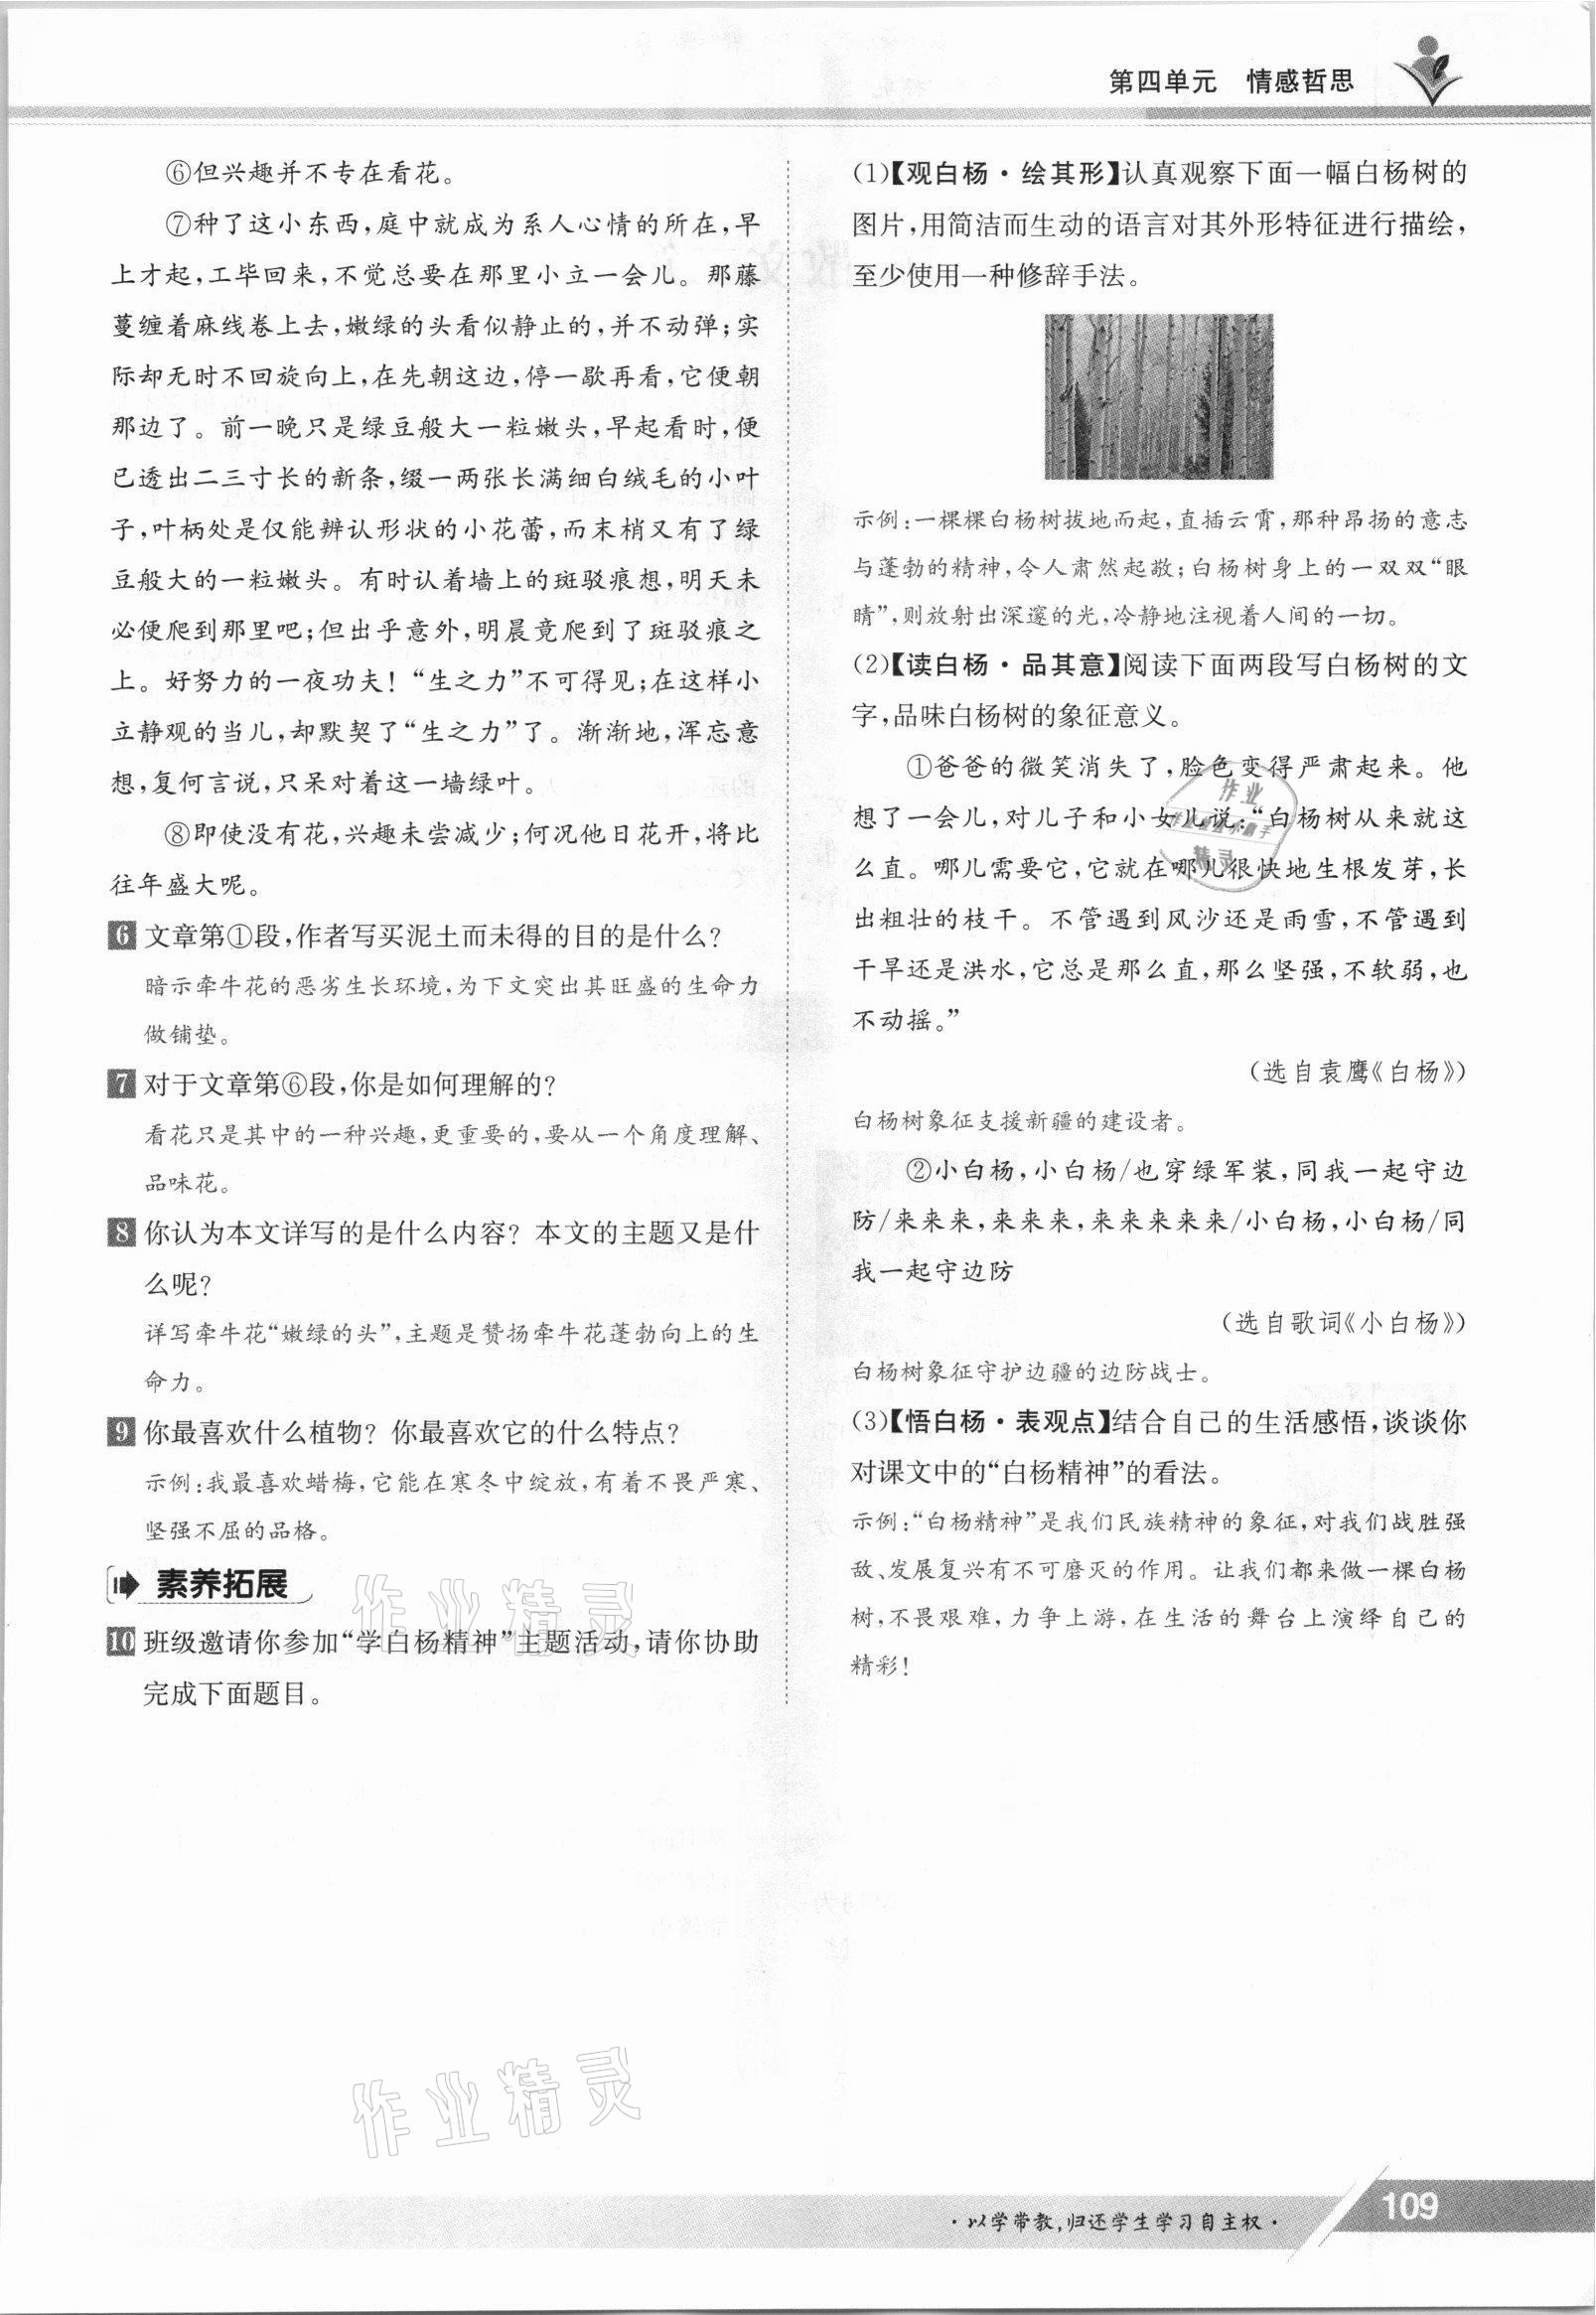 第四单元 情感哲思
⑥但兴趣并不专在看花。
⑦种了这小东西,庭中就成为系人心情的所在,早
上才起,工毕回来,不觉总要在那里小立一会儿。那藤
蔓缠着麻线卷上去,嫩绿的头看似静止的,并不动弹;实
际却无时不回旋向上,在先朝这边,停一歇再看,它便朝
那边了。前一晚只是绿豆般大一粒嫩头,早起看时,便
已透出二三寸长的新条,缀一两张长满细白绒毛的小叶
子,叶柄处是仅能辨认形状的小花蕾,而末梢又有了绿
豆般大的一粒嫩头。有时认着墙上的斑驳痕想,明天未
必便爬到那里吧;但出乎意外,明晨竟爬到了斑驳痕之
上。好努力的一夜功夫!“生之力”不可得见;在这样小
立静观的当儿,却默契了“生之力”了。渐渐地,浑忘意
想,复何言说,只呆对着这一墙绿叶。
⑧即使没有花,兴趣未尝减少;何况他日花开,将比
往年盛大呢。
6 文章第①段,作者写买泥土而未得的目的是什么?
暗示牵牛花的恶劣生长环境,为下文突出其旺盛的生命力
做铺垫。
7 对于文章第⑥段,你是如何理解的?
看花只是其中的一种兴趣,更重要的,要从一个角度理解、
品味花。
8 你认为本文详写的是什么内容?本文的主题又是什
么呢?
详写牵牛花“嫩绿的头”,主题是赞扬牵牛花蓬勃向上的生
命力。
9 你最喜欢什么植物?你最喜欢它的什么特点?
示例:我最喜欢蜡梅,它能在寒冬中绽放,有着不畏严寒、
坚强不屈的品格。
素养拓展
10 班级邀请你参加“学白杨精神”主题活动,请你协助
完成下面题目。
(1)【观白杨·绘其形】认真观察下面一幅白杨树的
图片,用简洁而生动的语言对其外形特征进行描绘,
至少使用一种修辞手法。
示例:一棵棵白杨树拔地而起,直插云霄,那种昂扬的意志
与蓬勃的精神,令人肃然起敬;白杨树身上的一双双“眼
睛”,则放射出深邃的光,冷静地注视着人间的一切。
(2)【读白杨·品其意】阅读下面两段写白杨树的文
字,品味白杨树的象征意义。
①爸爸的微笑消失了,脸色变得严肃起来。他
想了一会儿,对儿子和小女儿说:“白杨树从来就这
么直。哪儿需要它,它就在哪儿很快地生根发芽,长
出粗壮的枝干。不管遇到风沙还是雨雪,不管遇到
干旱还是洪水,它总是那么直,那么坚强,不软弱,也
不动摇。”
(选自袁鹰《白杨》)
白杨树象征支援新疆的建设者。
②小白杨,小白杨/也穿绿军装,同我一起守边
防/来来来,来来来,来来来来来/小白杨,小白杨/同
我一起守边防
(选自歌词《小白杨》)
白杨树象征守护边疆的边防战士。
(3)【悟白杨·表观点】结合自己的生活感悟,谈谈你
对课文中的“白杨精神”的看法。
示例:“白杨精神”是我们民族精神的象征,对我们战胜强
敌、发展复兴有不可磨灭的作用。让我们都来做一棵白杨
树,不畏艰难,力争上游,在生活的舞台上演绎自己的
精彩!
作业
精灵
作业精灵
作业精灵
·以学带教,归还学生学习自主权·
109